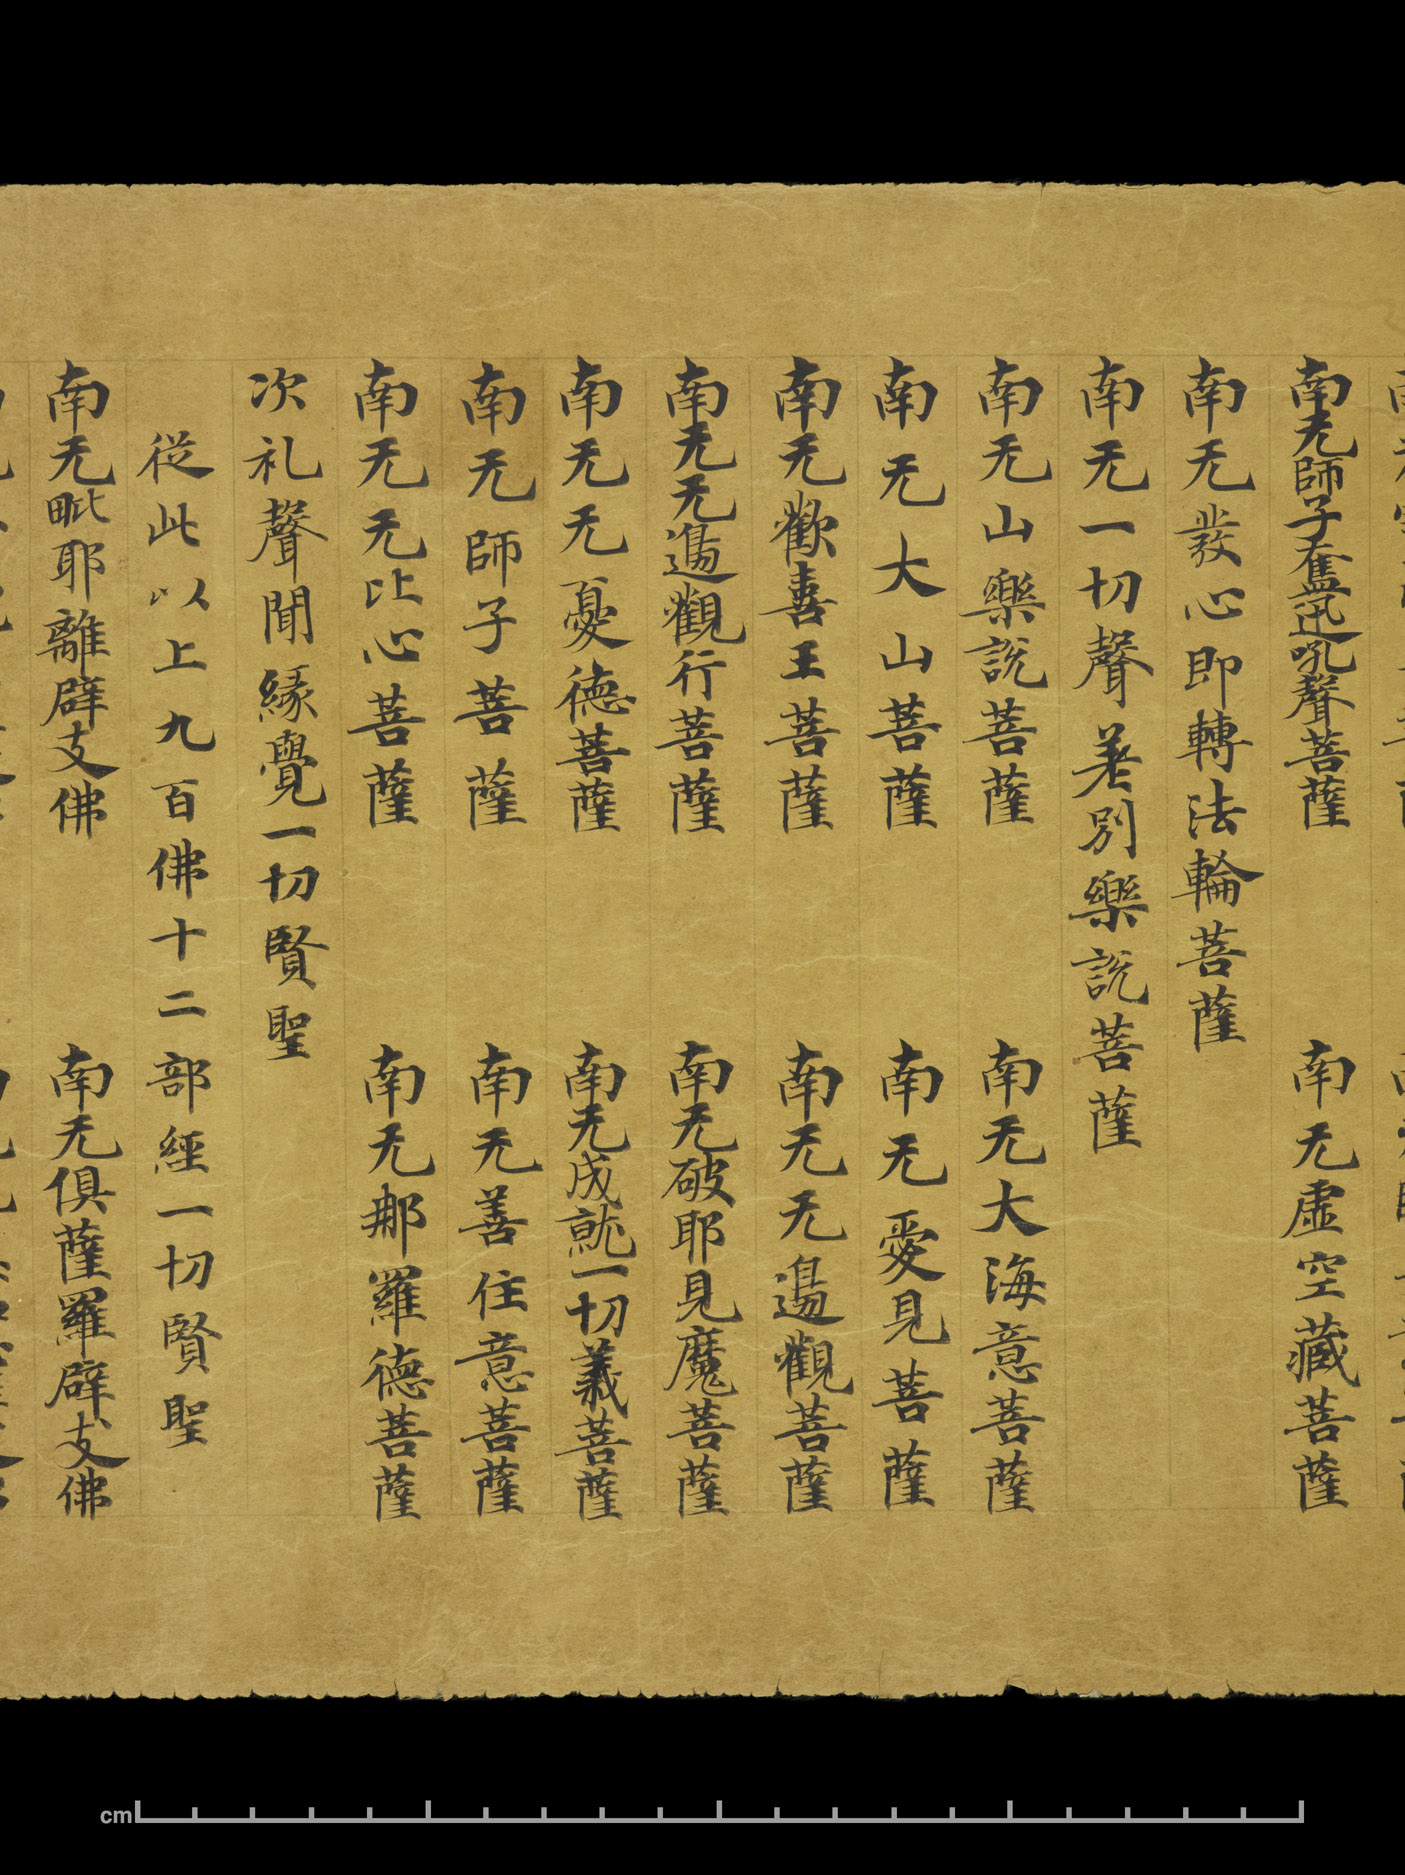 南无師子奮迅吼聲菩薩 南无虛空藏菩薩
南无發心即轉法輪菩薩
南无一切聲差別樂說菩薩
南无山樂說菩薩 南无大海意菩薩
南无大山菩薩 南无愛見菩薩
南无歡喜王菩薩 南无无邊觀菩薩
南无无邊觀行菩薩 南无破耶見魔菩薩
南无无憂德菩薩 南无成就一切義菩薩
南无師子菩薩 南无善住意菩薩
南无无比心菩薩 南无那羅德菩薩
次礼聲聞緣覺一切賢聖
從此以上九百佛十二部經一切賢聖
南无毗耶離辟支佛 南无俱薩羅辟支佛
cm